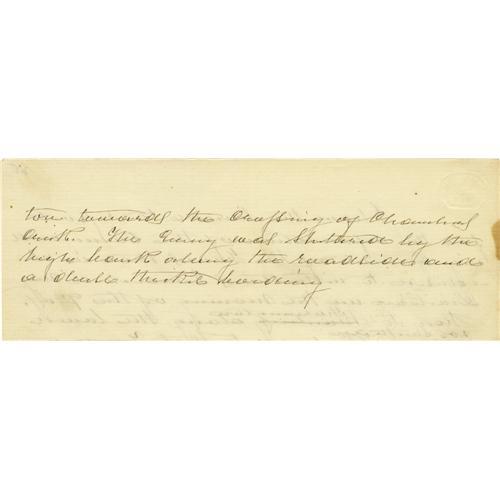 ton towards the Crossing of Chambers
Creek. The Enemy was Sheltered by the
high bank along the roadside and
a dense thicket bordering